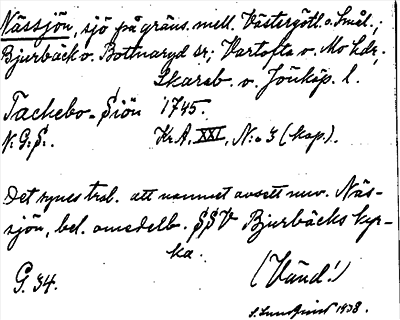 Nässjön, sjö på gräns. mell. Västergötl. o. Smål.;
Bjurbäck o. Bottnaryd sr; Vartofta o. Mo hdr;
Skarab. o. Jönköp. l.
Tackebo-Siön 1745.
N. G. S. Kr. A. XXI, N:o 3 (kop.).
Det synes trol. att namnet avsett nuv. Näs-
sjön, bel. omedelb. SSV Bjurbäcks kyr-
ka.
G. 34. (Vänd!)
S. Lundquist 1938.